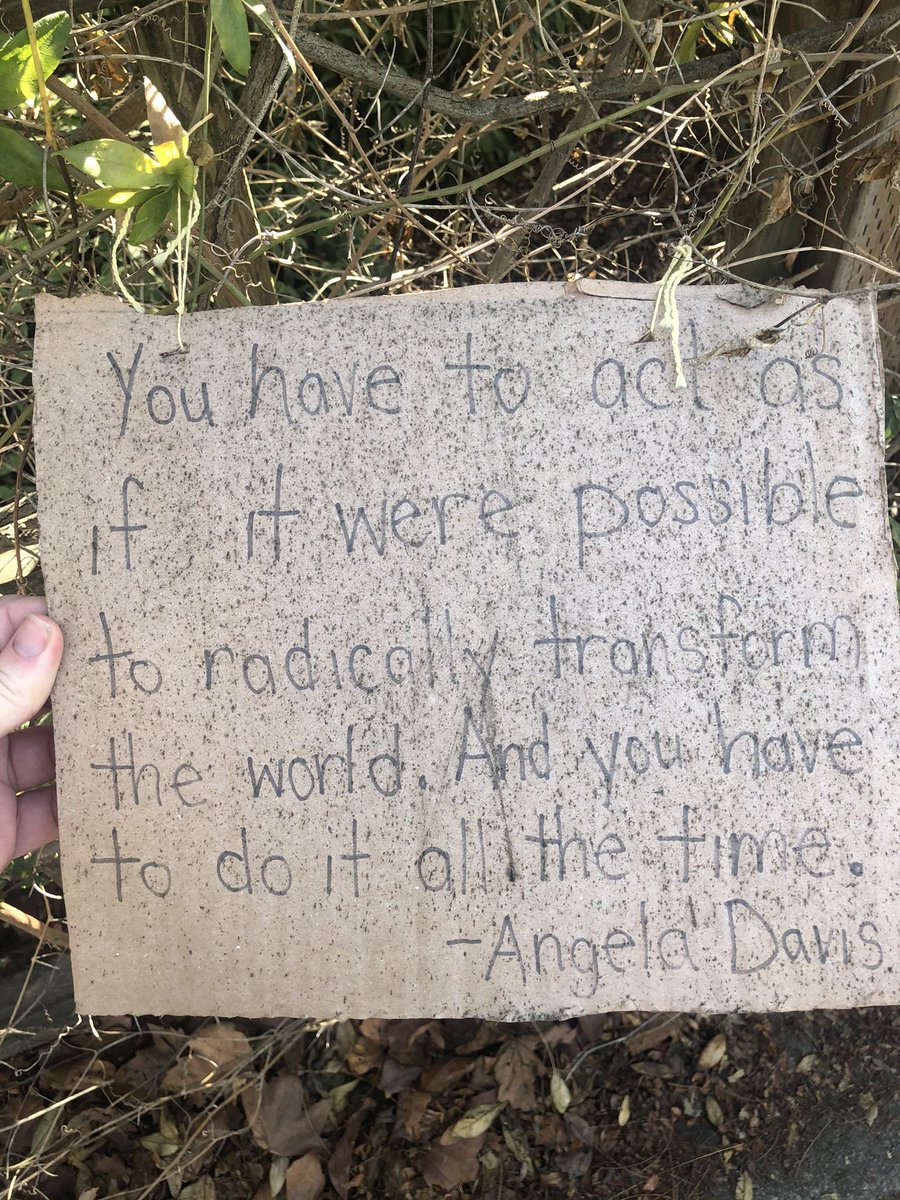 You have to act as
if it were possible
to radically transform
the world. And you have
to do it all the time.
-Angela Davis